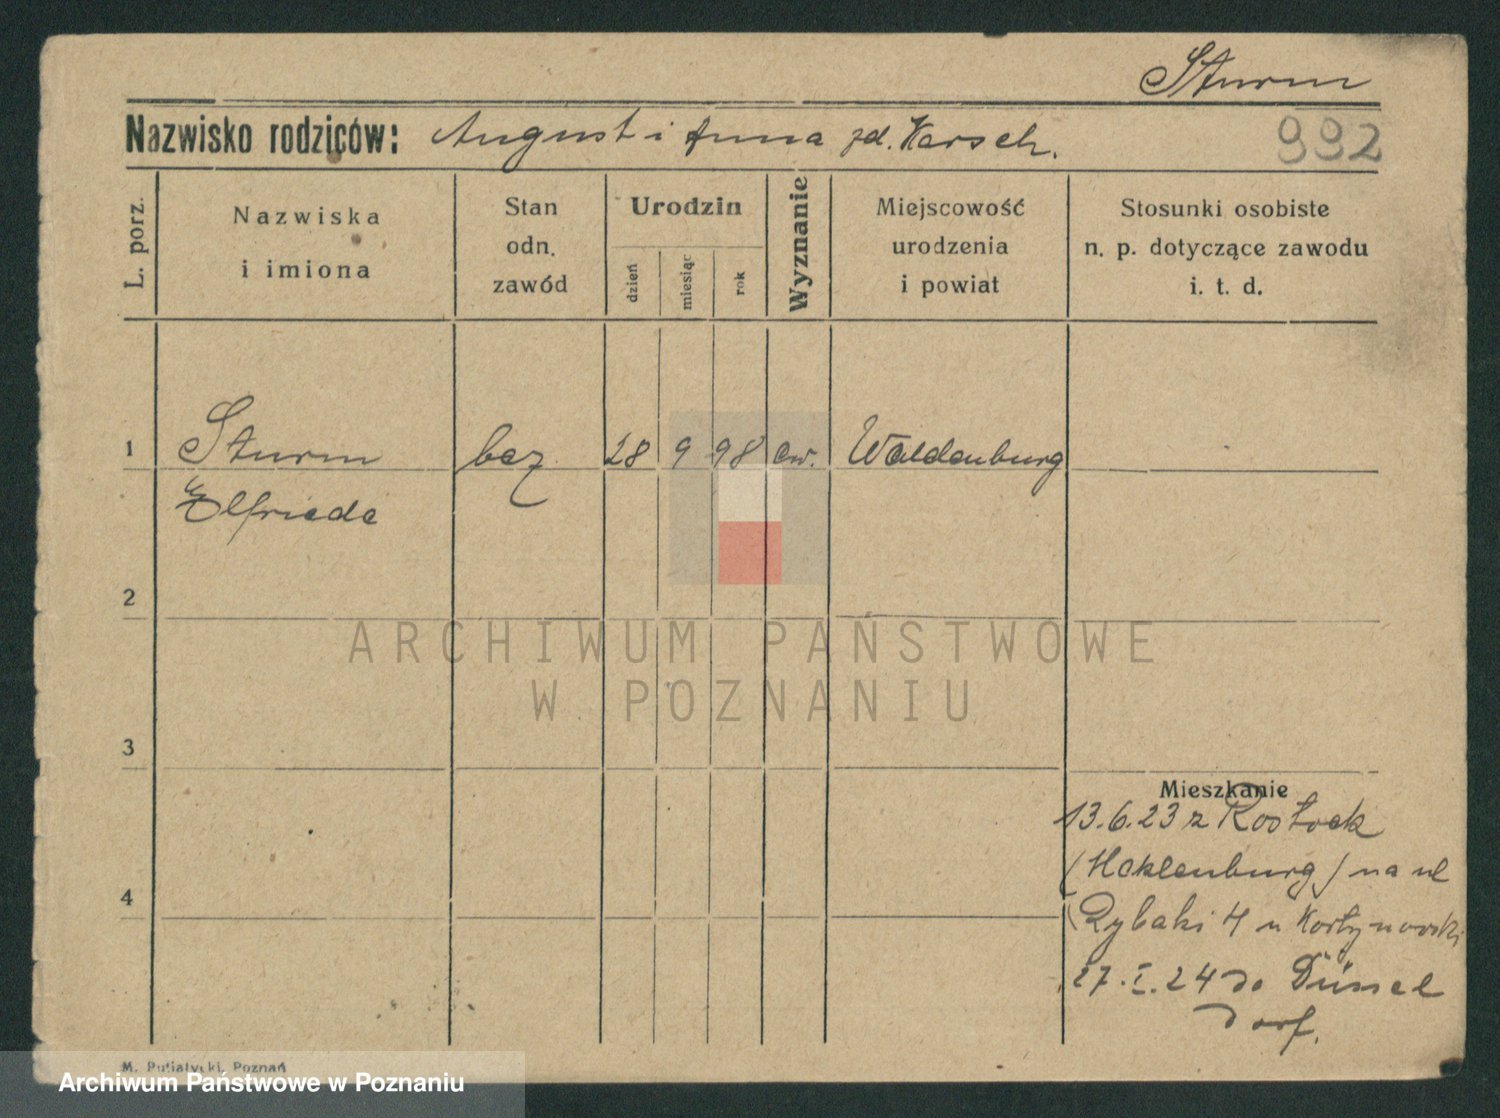 Sturm
Nazwisko rodziców: August i Anna zd. Karsch.
992
L. porz.
Nazwiska
i imiona
Stan
odn.
zawód
Urodzin
dzień
miesiąc
rok
Wyznanie
Miejscowość
urodzenia
i powiat
Stosunki osobiste
n. p. dotyczące zawodu
i. t. d.
1 Sturm bez 28 9 98 ew. Waldenburg
Elfriede
2
ARCHIWUM PAŃSTWOWE
W POZNANIU
3
Mieszkanie
13.6.23 z Rostock
(Meklenburg) na ul
4
Rybaki 4 u
27.I.24 do Düssel
dorf.
M. Putiatycki, Poznań
Archiwum Państwowe w Poznaniu